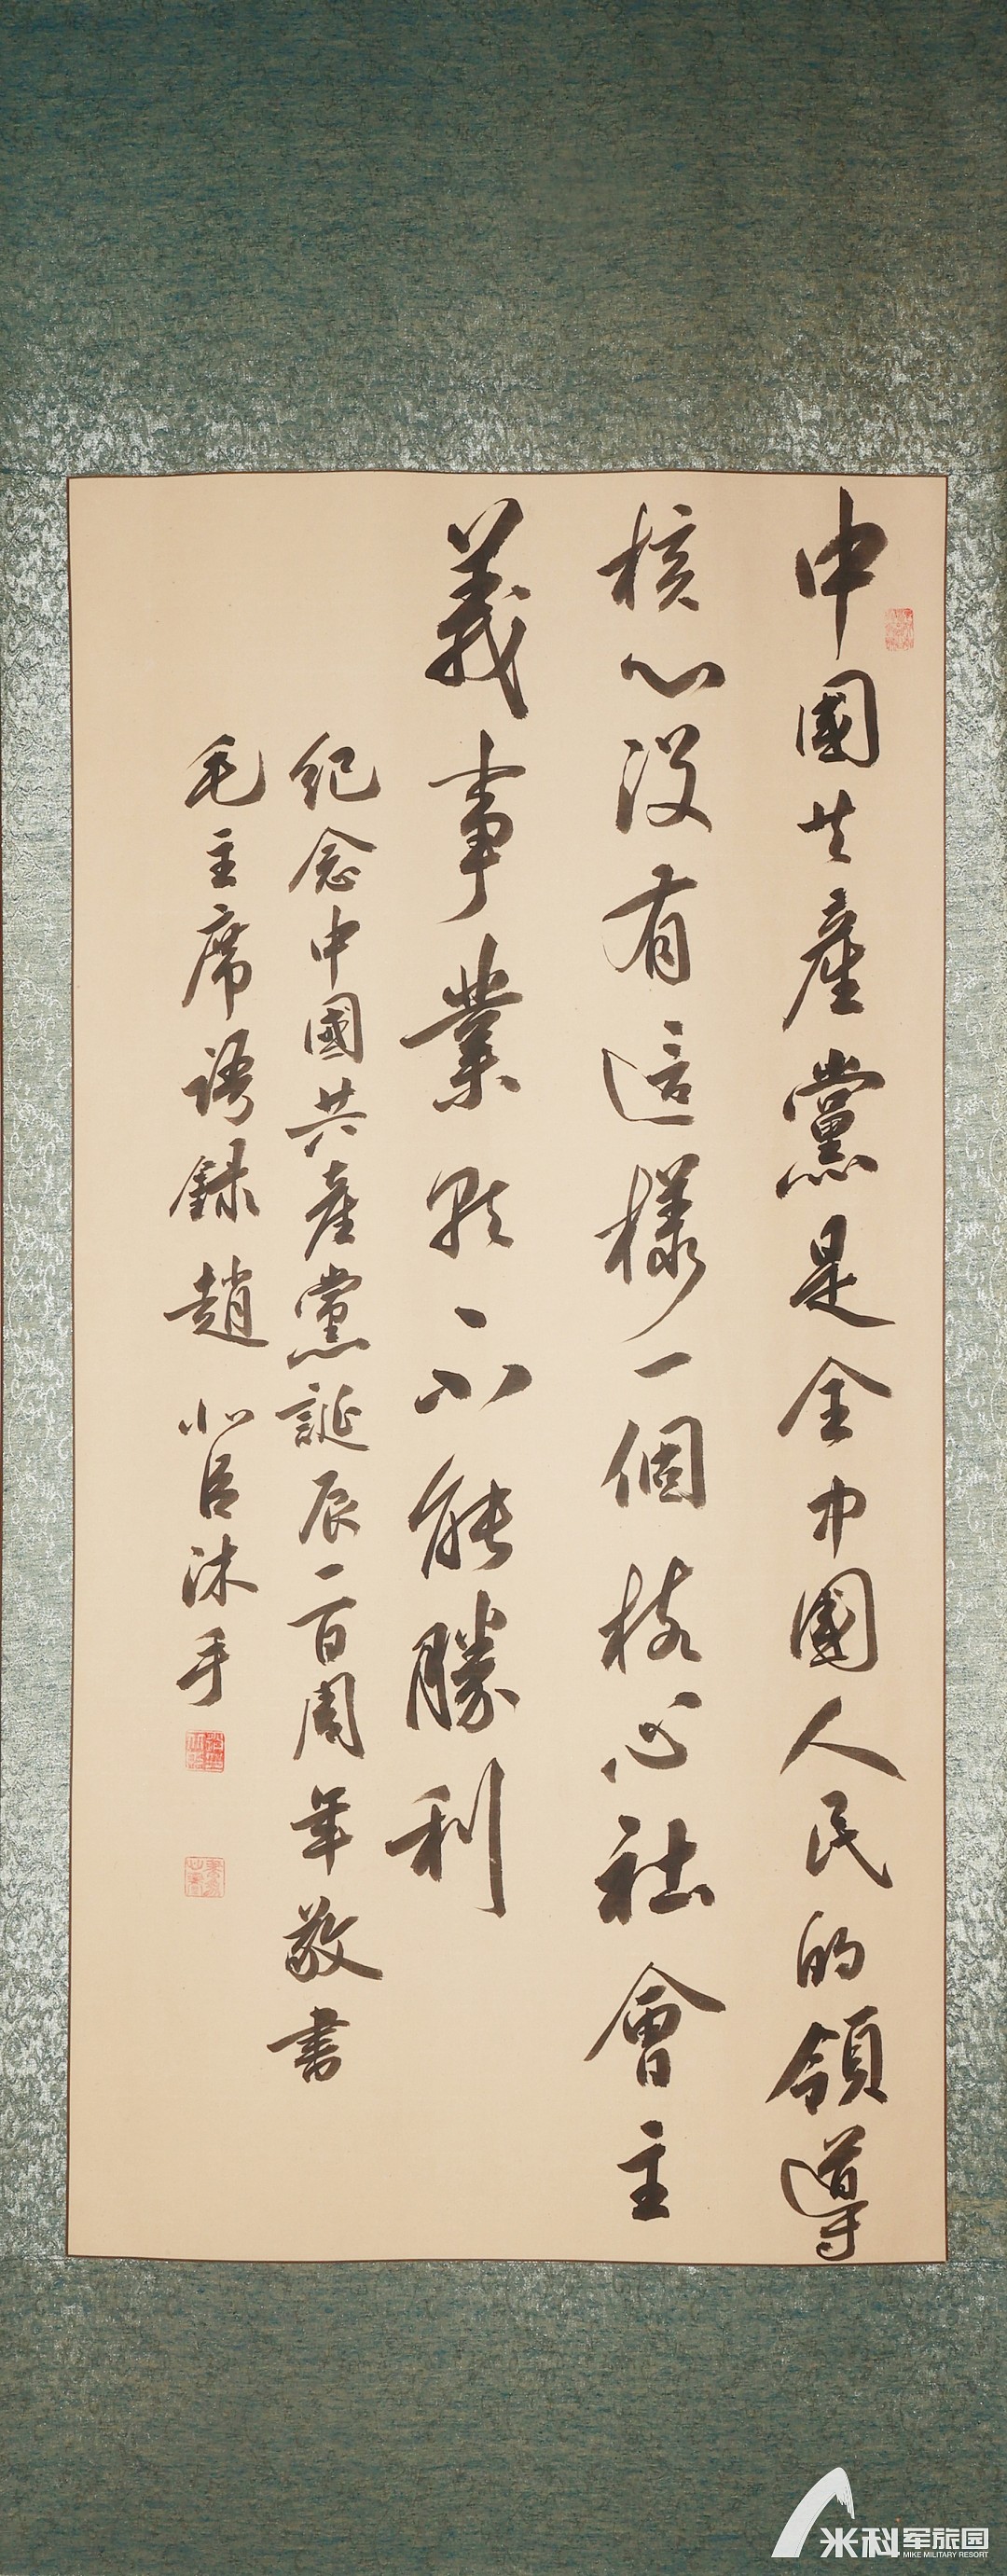 中國共產黨是全中國人民的領導
核心沒有這樣一個核心社會主
義事業就不能勝利
紀念中國共產黨誕辰一百周年敬書
毛主席語錄趙小呂沐手
米科军旅园
MIKE MILITARY RESORT